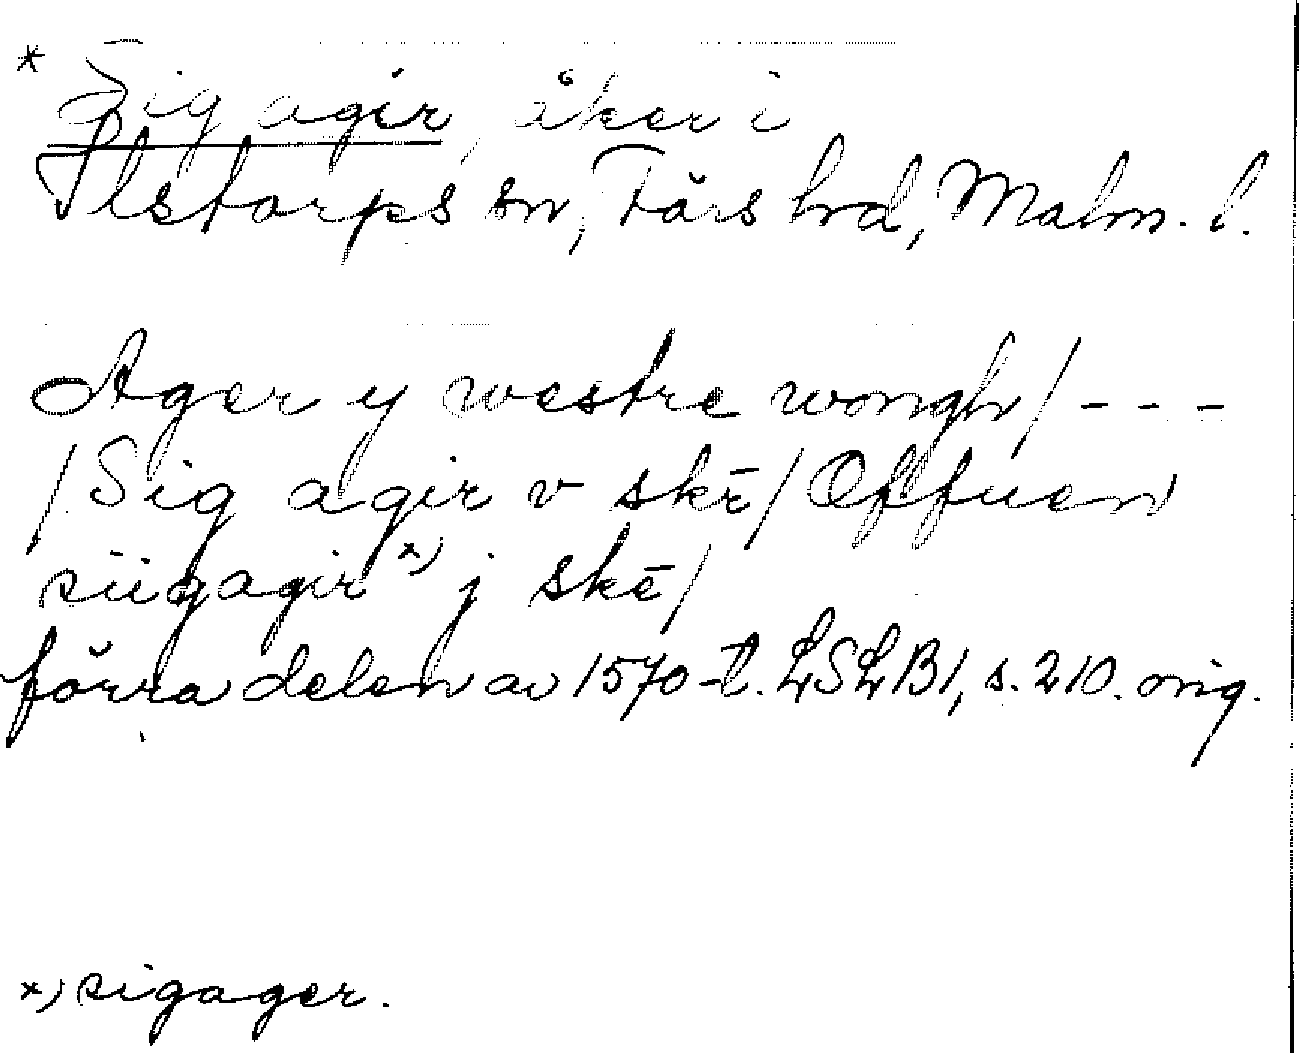 * Sig agir, åker i
Ilstorps sn, Färs hd, Malm. l.
Ager y westre wongh/ - - -
/Sig agir v skē/ Offuen
siigagir x) j skē/
förra delen av 1570-t. LSLB1, s. 210. orig.
x) sigager.